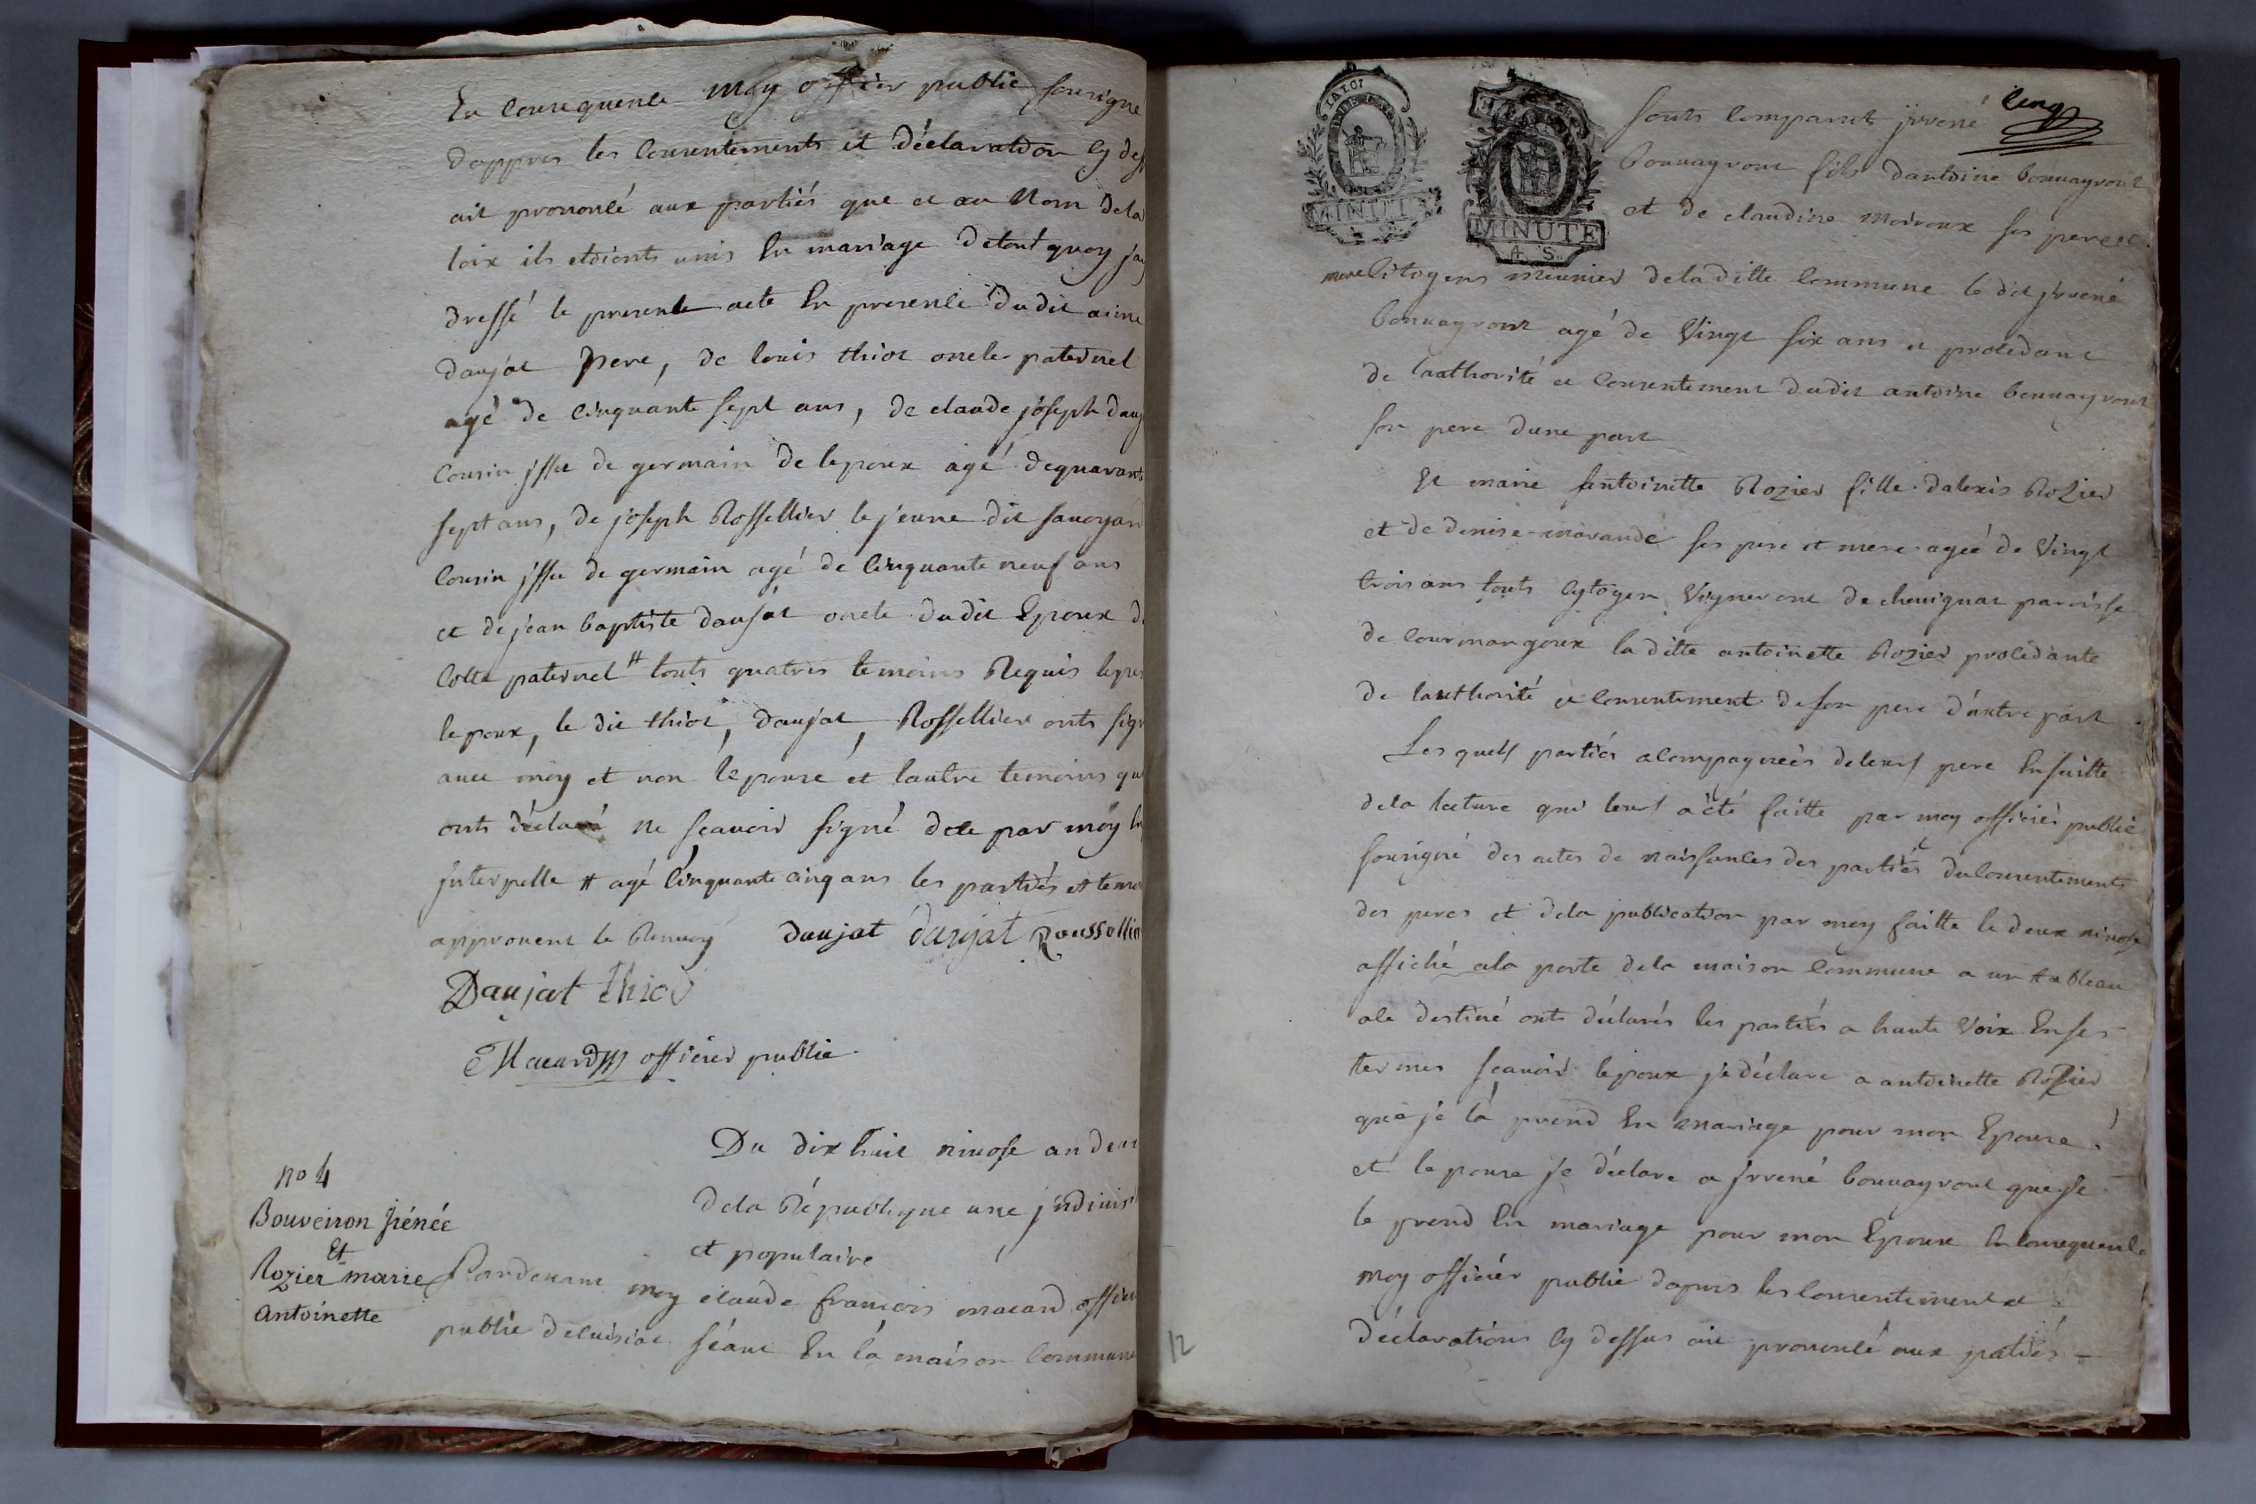 En consequence moy officier public sousigné
dappres les consentements et déclaration cy dess
ait prononcé aux partiés que et au Nom de la
loix ils etoients unis En mariage de tout quoy jay
dressé le present acte En presence dudit aime
daujat pere, de louis thiot oncle paternel
agé de cinquante sept ans, de claude joseph dauj
cousin jssu de germain de lepoux agé de quarante
sept ans, de joseph Rossellier le jeune dit savoyard
cousin jssu de germain agé de cinquante neuf ans
et de jean baptiste daujat oncle dudit Epoux du
Cotté paternel # touts quatres temoins Requis
lepoux, le dit thiot, daujat, Rossellier onts sign
avec moy et non lépouse et lautre temoins qui
onts déclaré ne scavoir signé de ce par moy
jnterpellé # agé cinquante cinq ans les partiés et temo
approuvent le Renvoy daujat daujat Roussellier
Daujat thiot
Macard officier public
no 4
Bouveiron jrénée
Et
Rozier marie
Antoinette
Du dix huit nivose an deux
de la Républyque une jndivis
et populaire
Pardevant moy claude françois macard officier
public de cuisiat séant En la maison Commune
12
LA LOI
MINUTE
MINUTE
A. S.
cinq
sonts comparut jrrené
bouvayront fils dantoine bouvayront
et de claudine moiroux ses pere et
mere Citoyens meunier de la ditte Commune le dit jrrené
bouvayront agé de Vingt six ans et procedant
de lauthorité et consentement dudit antoine bouvayront
son pere dune part
Et marie antoinette Rozier fille dalexis Rozier
et de denise morande ses pere et mere agée de Vingt
trois ans touts Cytoyen Vigneront de chevignat paroisse
de Courmangoux la ditte antoinette Rozier procédante
de lauthorité et consentement de son pere d'autre part
Les quels partiés acompagneés de leurs pere Ensuitte
de la lecture qui leurs a été faitte par moy officier public
sousigné des actes de naissances des partiés du consentements
des peres et de la publication par moy faitte le deux nivose
affiché a la porte de la maison Commune a un tableau
a ce destiné onts déclarés les partiés a haute Voix En ses
termes scavoir lepoux je déclare a antoinette Rozier
que je la prend En mariage pour mon Epouse
et lepouse je déclare a jrrené bouvayront que je
le prend En mariage pour mon Epoux En consequence
moy officier public dapres les consentement et
déclarations cy dessus ait prononcé aux patiés